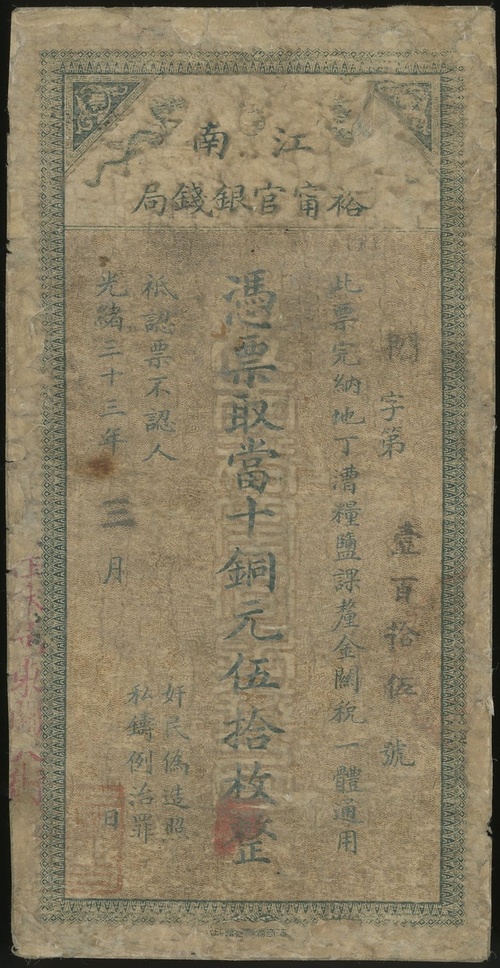 江南
裕甯官銀錢局
字第壹百拾伍號
此票完納地丁漕糧鹽課釐金關稅一體通用
憑票取當十銅元伍拾枚整
祗認票不認人
奸民偽造照
私鑄例治罪
光緒三十三年三月 日